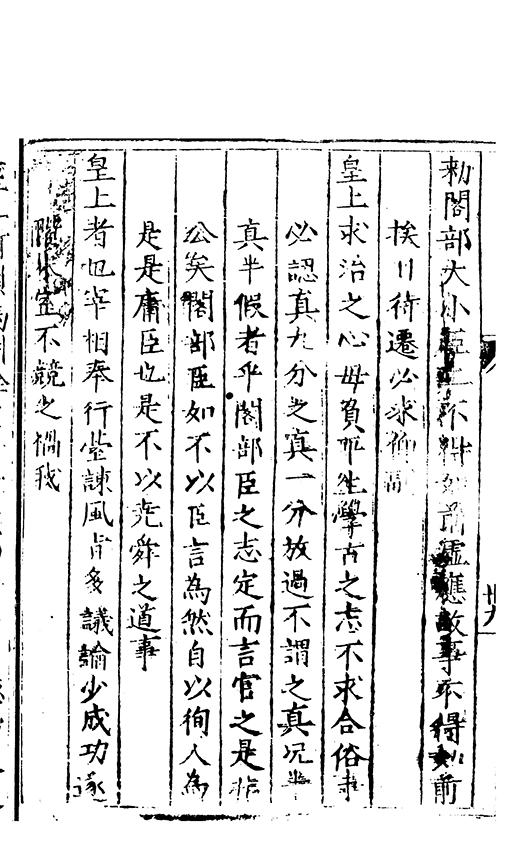 勅閣部大小臣工不得如前虛應故事不得如前
挨日待遷必求仰副
皇上求治之心毋負平生學古之志不求合俗事
必認真九分之真一分放過不謂之真况半
真半假者乎閣部臣之志定而言官之是非
公矣閣部臣如不以臣言為然自以徇人為
是是庸臣也是不以堯舜之道事
皇上者也宰相奉行臺諫風旨多議論少成功遂
階 室不競之禍我
卅九